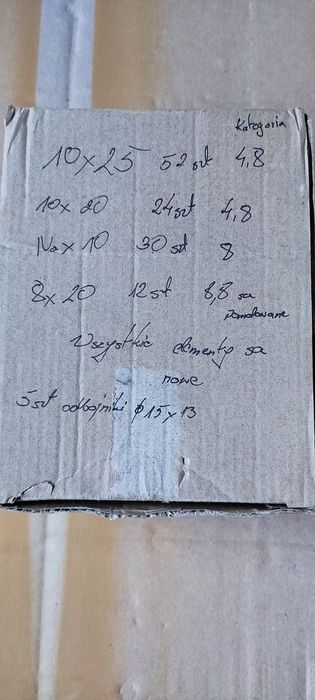 Kategoria
10x25 52szt 4,8
10x20 24szt 4,8
Na x 10 30szt 8
8x20 12szt 8,8 sa
pomalowane
Wszystkie elementy sa
nowe
5szt odbojniki ϕ 15x13